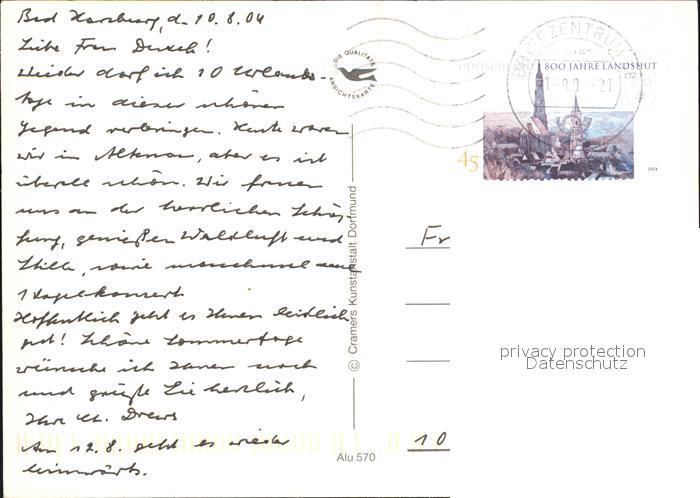 Bad Harzburg, d. 10.8.04
Liebe Frau
Wieder darf ich 10 Urlaubs-
tage in dieser schönen
Gegend verbringen. Heute waren
wir in Altenau, aber es ist
überall schön. Wir freuen
uns an der herrlichen Schöp-
fung, genießen Waldluft und
Stille, sowie manchmal
Vogelkonzert
Hoffentlich geht es Ihnen leidlich
gut! Schöne Sommertage
wünsche ich Ihnen noch
und grüße Sie herzlich,
Ihre Drews
Am 12.8. geht es wieder
heimwärts.
DIE QUALITÄTS
ANSICHTSKARTE
© Cramers Kunstanstalt Dortmund
Alu 570
BRIEFZENTRUM
DEUTSCHLAND 800 JAHRE LANDSHUT
45
2004
Fr
10
privacy protection
Datenschutz